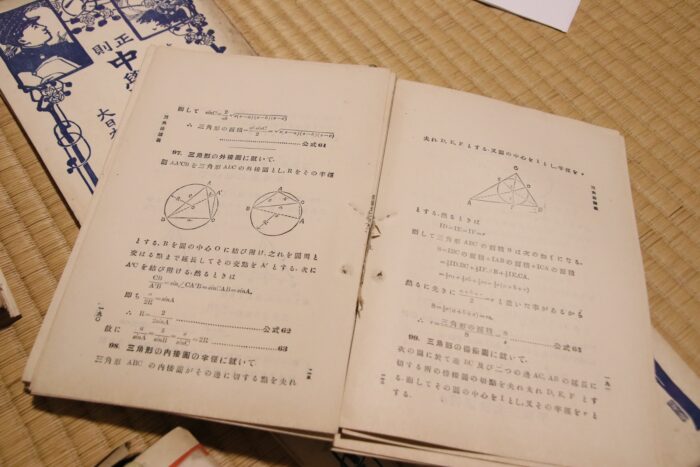 正則
中
大日
三角法講義
而して sinC = 2/ab √s(s-a)(s-b)(s-c)
∴ 三角形の面積 = ab sinC/2 = √s(s-a)(s-b)(s-c)
公式 61
97. 三角形の外接圓に就いて.
圓 AA'CB を三角形 ABC の外接圓とし, R をその半徑
とする. B を圓の中心 O に結び附け, 之れを圓周と
交はる點まで延長してその交點を A' とする. 次に
A'C を結び附ける. 然るときは
CB/A'B = sin∠CA'B = sinCAB = sinA
即ち a/2R = sinA
∴ R = a/2sinA 公式 62
故に a/sinA = b/sinB = c/sinC = 2R 63
98. 三角形の内接圓の半徑に就いて.
三角形 ABC の内接圓がその邊に切する點を夫れ
一九〇
三角法講義
夫れ D, E, F とする. 又圓の中心を I とし, 半徑を r
とする. 然るときは
ID=IE=IF=r
而して三角形 ABC の面積 S は次の如くになる.
S=IBC の面積+IAB の面積+ICA の面積
然るに先きに a+b+c/2 = s と置いた事があるから
S=½r(a+b+c)=rs.
∴ r = 三角形の面積/s = S/s 公式
99. 三角形の傍接圓に就いて.
次の圖に於て邊 BC 及び二つの邊 AC, AB の延長に
切する所の傍接圓の切點を夫れ夫れ D, E, F とす
る. 而してその圓の中心を I とし, 又その半徑を r と
する.
一九一